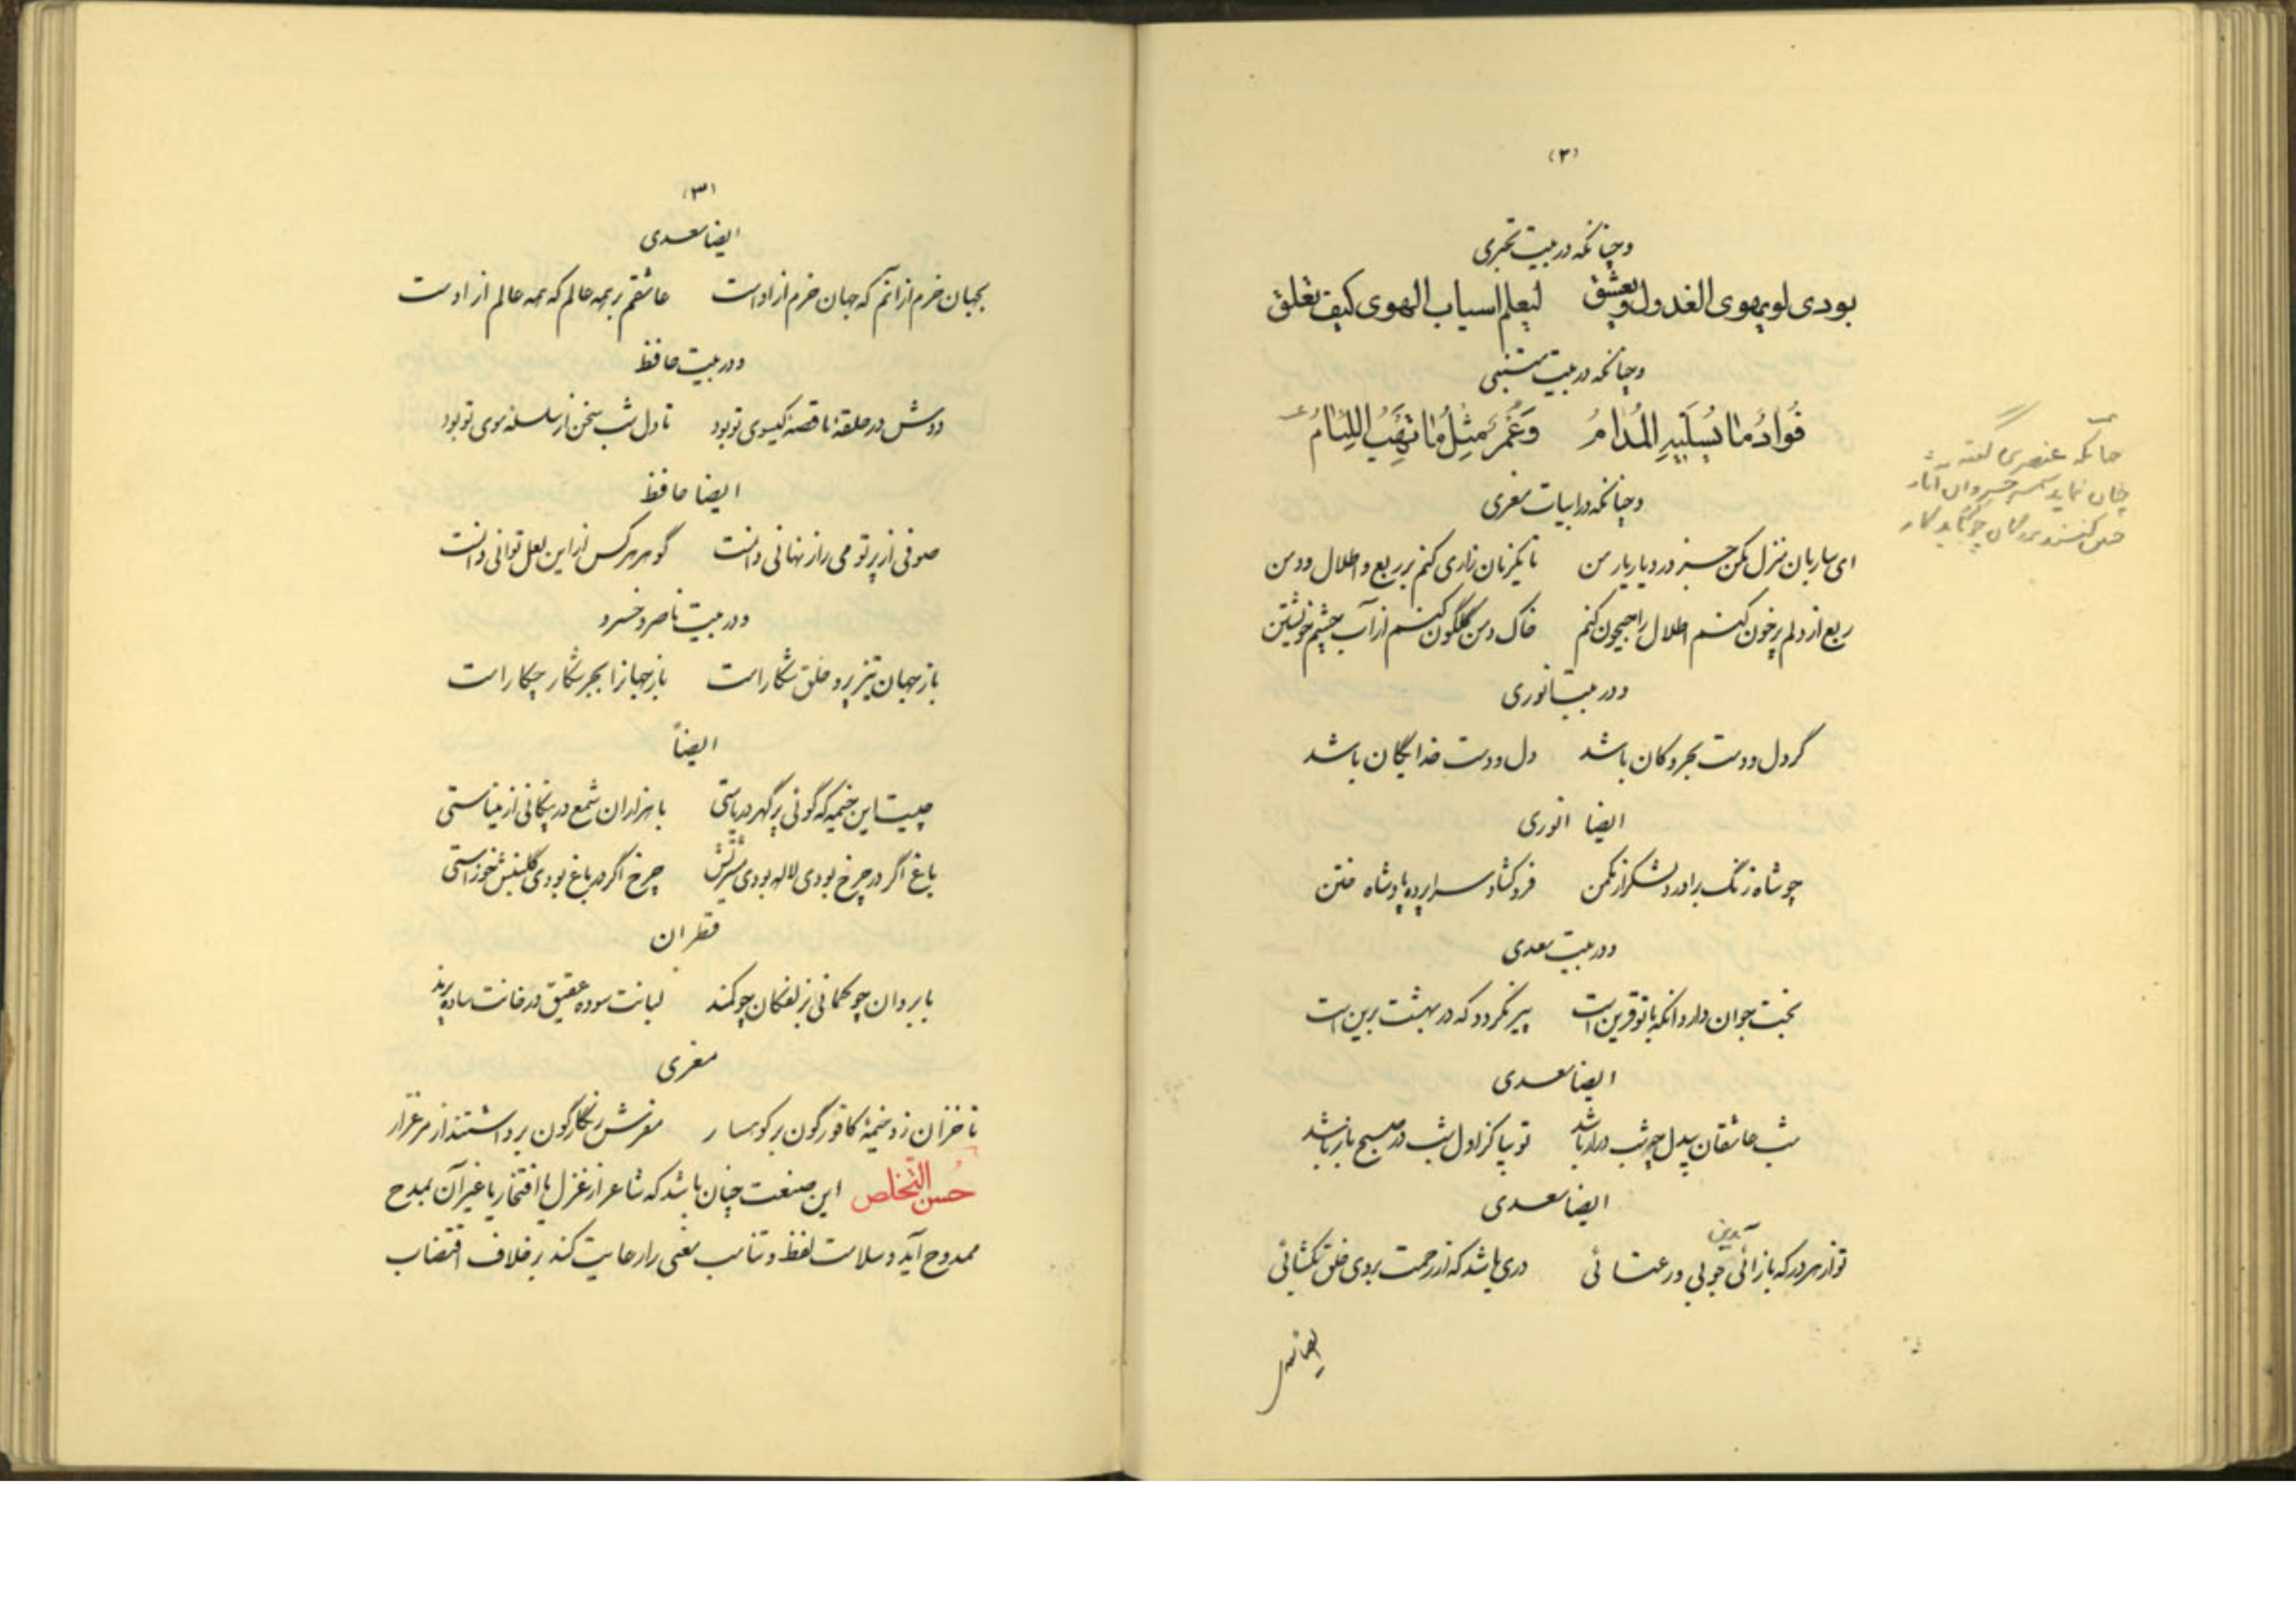 (۲)
و چنانکه در بیت بحتری
بودی لویهوی الغدول ویعشق لیعلم اسباب الهوی کیف تغلق
و چنانکه در بیت متنبی
فُوادُ ما یُسَلّیهِ المُدامُ وَعُمرٌ مِثلُ ما تَهَبُ اللِئامُ
و چنانکه در ابیات معزی
ای ساربان منزل مکن جز در دیار یار من تا یکزمان زاری کنم بر ربع و اطلال و دمن
ربع از دلم پرخون کنم اطلال را جیحون کنم خاک دمن گلگون کنم از آب چشم خویشتن
و در بیت انوری
گر دل و دست بحر و کان باشد دل و دست خدایگان باشد
ایضا انوری
چو شاه زنگ برآورد لشکر از مکمن فرو گشاد سراپرده پادشاه ختن
و در بیت سعدی
بخت جوان دارد آنکه با تو قرین است پیر نگردد که در بهشت برین است
ایضا سعدی
شب عاشقان بیدل چه شب دراز باشد تو بیا کز اول شب در صبح باز باشد
ایضا سعدی
تو از هر در که باز آئی بدین خوبی و رعنائی دری باشد که از رحمت بروی خلق بگشائی
ایضا
چنانکه عنصری گفته
چنان نماید شمشیر خسروان آثار
چنین کنند بزرگان چو کرد باید کار
(۳)
ایضا سعدی
بجهان خرم از آنم که جهان خرم از اوست عاشقم بر همه عالم که همه عالم از اوست
و در بیت حافظ
دوش در حلقهٔ ما قصهٔ گیسوی تو بود تا دل شب سخن از سلسله موی تو بود
ایضا حافظ
صوفی از پرتو می راز نهانی دانست گوهر هر کس از این لعل توانی دانست
و در بیت ناصر خسرو
باز جهان تیز پر و خلق شکار است باز جهانرا بجز شکار چکار است
ایضاً
چیست این خیمه که گوئی پر گهر دریاستی با هزاران شمع در پنگانی از میناستی
باغ اگر در چرخ بودی لاله بودی مشتریش چرخ اگر در باغ بودی گلبنش جوزاستی
قطران
با بروان چو کمانی بزلفکان چو کمند لبانت سوده عقیق و رخانت ساده پرند
معزی
تا خزان زد خیمهٔ کافورگون بر کوهسار مفرش زنگارگون برداشتند از مرغزار
حُسن التّخلص این صنعت چنان باشد که شاعر از غزل یا افتخار یا غیر آن بمدح
ممدوح آید و سلاست لفظ و تناسب معنی را رعایت کند بر خلاف اقتضاب